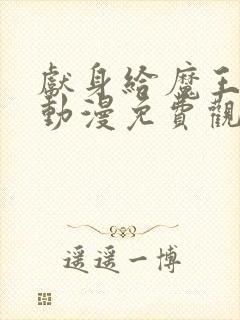 獻身給魔王
動漫免費觀
遥遥一博